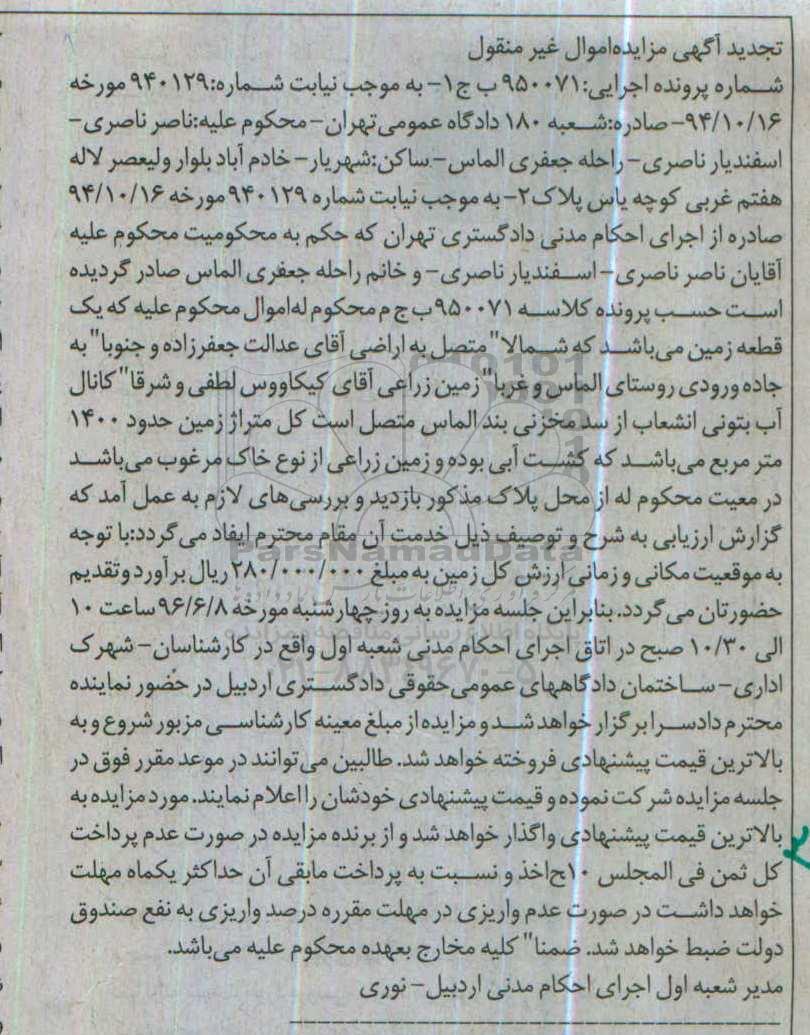 تجدید آگهی مزایده‌اموال غیر منقول
شماره پرونده اجرایی:۹۵۰۰۷۱ ب ج۱- به موجب نیابت شماره:۹۴۰۱۲۹ مورخه
۹۴/۱۰/۱۶- صادره:شعبه ۱۸۰ دادگاه عمومی‌تهران- محکوم علیه:ناصر ناصری-
اسفندیار ناصری- راحله جعفری الماس- ساکن:شهریار- خادم آباد بلوار ولیعصر لاله
هفتم غربی کوچه یاس پلاک۲- به موجب نیابت شماره ۹۴۰۱۲۹ مورخه ۹۴/۱۰/۱۶
صادره از اجرای احکام مدنی دادگستری تهران که حکم به محکومیت محکوم علیه
آقایان ناصر ناصری- اسفندیار ناصری- و خانم راحله جعفری الماس صادر گردیده
است حسب پرونده کلاسه ۹۵۰۰۷۱ب ج م محکوم له‌اموال محکوم علیه که یک
قطعه زمین می‌باشد که شمالا" متصل به اراضی آقای عدالت جعفرزاده و جنوبا" به
جاده ورودی روستای الماس و غربا" زمین زراعی آقای کیکاووس لطفی و شرقا" کانال
آب بتونی انشعاب از سد مخزنی بند الماس متصل است کل متراژ زمین حدود ۱۴۰۰
متر مربع می‌باشد که کشت آبی بوده و زمین زراعی از نوع خاک مرغوب می‌باشد
در معیت محکوم له از محل پلاک مذکور بازدید و بررسی‌های لازم به عمل آمد که
گزارش ارزیابی به شرح و توصیف ذیل خدمت آن مقام محترم ایفاد می‌گردد:با توجه
به موقعیت مکانی و زمانی ارزش کل زمین به مبلغ ۲۸۰/۰۰۰/۰۰۰ ریال برآورد و تقدیم
حضورتان می‌گردد. بنابراین جلسه مزایده به روز چهارشنبه مورخه ۹۶/۶/۸ ساعت ۱۰
الی ۱۰/۳۰ صبح در اتاق اجرای احکام مدنی شعبه اول واقع در کارشناسان- شهرک
اداری- ساختمان دادگاههای عمومی‌حقوقی دادگستری اردبیل در حضور نماینده
محترم دادسرا برگزار خواهد شد و مزایده از مبلغ معینه کارشناسی مزبور شروع و به
بالاترین قیمت پیشنهادی فروخته خواهد شد. طالبین می‌توانند در موعد مقرر فوق در
جلسه مزایده شرکت نموده و قیمت پیشنهادی خودشان را اعلام نمایند. مورد مزایده به
بالاترین قیمت پیشنهادی واگذار خواهد شد و از برنده مزایده در صورت عدم پرداخت
کل ثمن فی المجلس ۱۰ح‌اخذ و نسبت به پرداخت مابقی آن حداکثر یکماه مهلت
خواهد داشت در صورت عدم واریزی در مهلت مقرره درصد واریزی به نفع صندوق
دولت ضبط خواهد شد. ضمنا" کلیه مخارج بعهده محکوم علیه می‌باشد.
مدیر شعبه اول اجرای احکام مدنی اردبیل- نوری
ParsNamadData